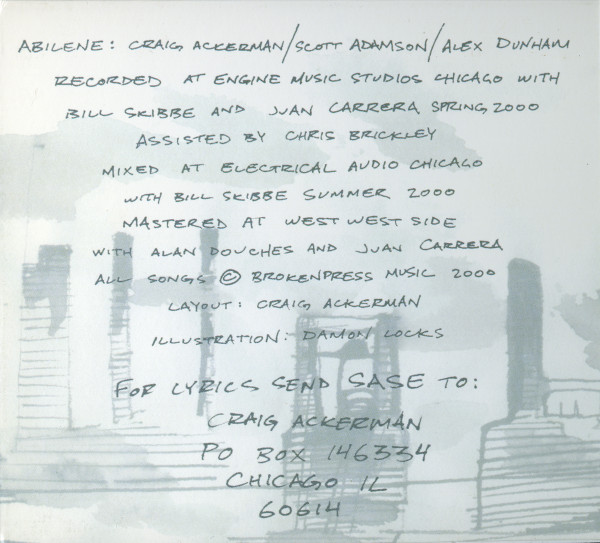 ABILENE: CRAIG ACKERMAN/SCOTT ADAMSON/ALEX DUNHAM
RECORDED AT ENGINE MUSIC STUDIOS CHICAGO WITH
BILL SKIBBE AND JUAN CARRERA SPRING 2000
ASSISTED BY CHRIS BRICKLEY
MIXED AT ELECTRICAL AUDIO CHICAGO
WITH BILL SKIBBE SUMMER 2000
MASTERED AT WEST WEST SIDE
WITH ALAN DOUCHES AND JUAN CARRERA
ALL SONGS © BROKENPRESS MUSIC 2000
LAYOUT: CRAIG ACKERMAN
ILLUSTRATION: DAMON LOCKS
FOR LYRICS SEND SASE TO:
CRAIG ACKERMAN
PO BOX 146334
CHICAGO IL
60614